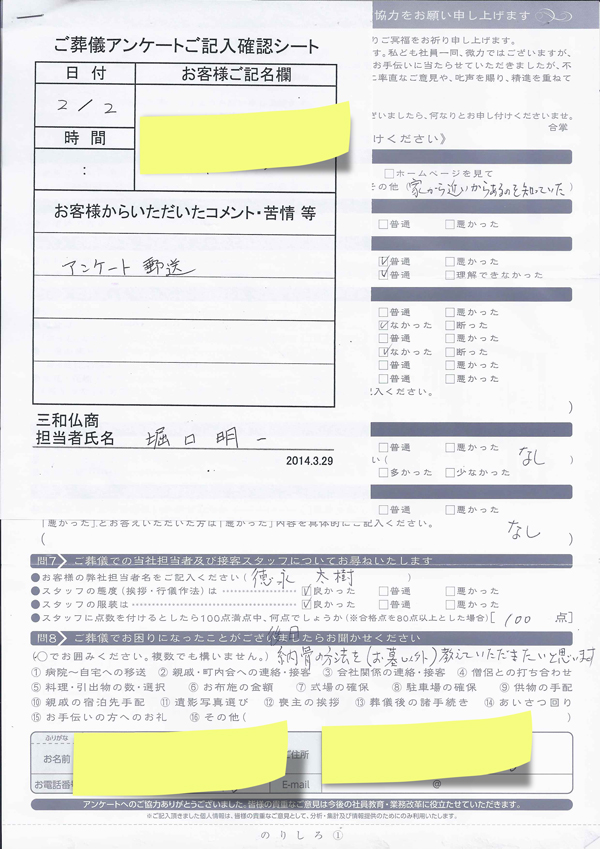 協力をお願い申し上げます
ご葬儀アンケートご記入確認シート
日付
お客様ご記名欄
2/2
時間
:
:
お客様からいただいたコメント・苦情 等
アンケート郵送
三和仏商
担当者氏名 堀口明一
2014.3.29
ご冥福をお祈り申し上げます。
す。私ども社員一同、微力ではございますが、
お手伝いに当たらせていただきましたが、不
ニ率直なご意見や、叱声を賜り、精進を重ねて
ざいましたら、何なりとお申し付けくださいませ。
合掌
けください》
□ホームページを見て
その他(家から近いからあるのを知っていた)
□普通 □悪かった
☑普通 □悪かった
☑普通 □理解できなかった
□普通 □悪かった
☑なかった □断った
□普通 □悪かった
☑なかった □断った
□普通 □悪かった
□普通 □悪かった
記入ください。
)
□普通 □悪かった
い( なし )
□多かった □少なかった
「悪かった」とお答えいただいた方は「悪かった」内容を具体的にご記入ください。
( なし )
問7 ご葬儀での当社担当者及び接客スタッフについてお尋ねいたします
●お客様の弊社担当者名をご記入ください(徳永 太樹)
●スタッフの態度(挨拶・行儀作法)は ☑良かった □普通 □悪かった
●スタッフの服装は ☑良かった □普通 □悪かった
●スタッフに点数を付けるとしたら100点満点中、何点でしょうか(※合格点を80点以上とした場合)[100 点]
問8 ご葬儀でお困りになったことがございましたらお聞かせください
(○でお囲みください。複数でも構いません。) 後日 納骨の方法を(お墓以外)教えていただきたいと思います
① 病院〜自宅への移送 ② 親戚・町内会への連絡・接客 ③ 会社関係の連絡・接客 ④ 僧侶との打ち合わせ
⑤ 料理・引出物の数・選択 ⑥ お布施の金額 ⑦ 式場の確保 ⑧ 駐車場の確保 ⑨ 供物の手配
⑩ 親戚の宿泊先手配 ⑪ 遺影写真選び ⑫ 喪主の挨拶 ⑬ 葬儀後の諸手続き ⑭ あいさつ回り
⑮ お手伝いの方へのお礼 ⑯ その他( )
ふりがな
お名前
ご住所
お電話番号
E-mail
@
アンケートへのご協力ありがとうございました。皆様の貴重なご意見は今後の社員教育・業務改革に役立たせていただきます。
※ご記入頂きました個人情報は、皆様の貴重なご意見として、分析・集計及び情報提供のためにのみ利用いたします。
のりしろ①